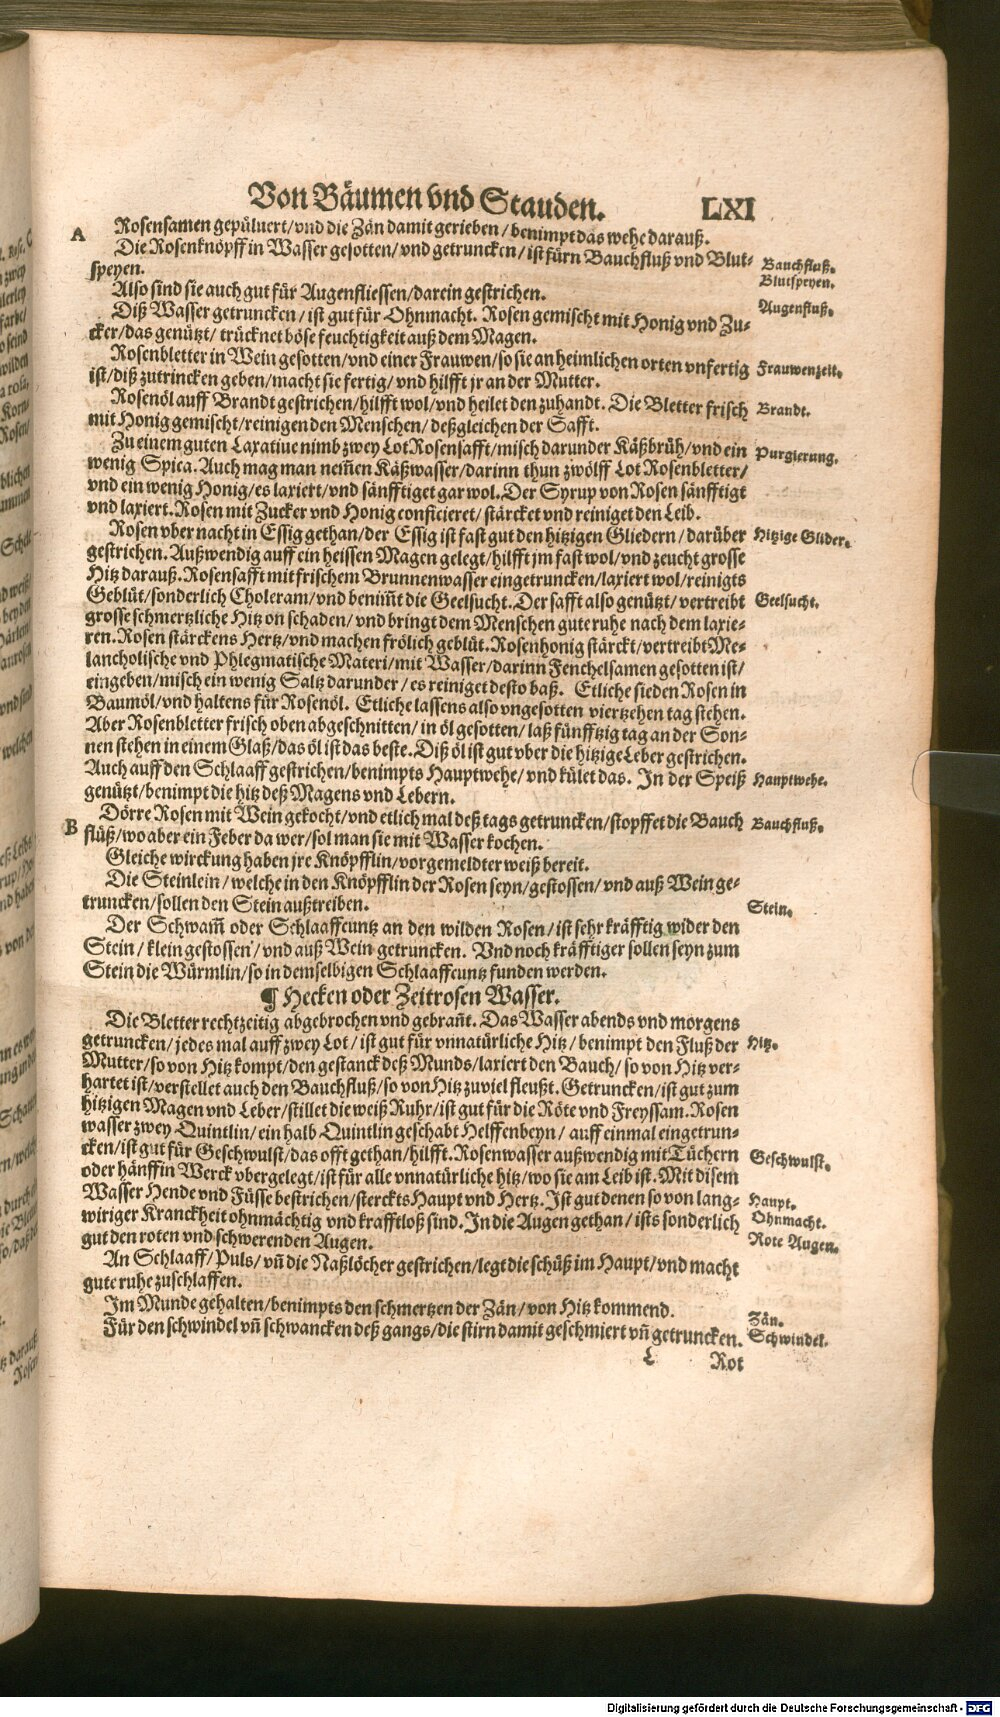 Von Bäumen vnd Stauden. LXI
A Rosensamen gepüluert/vnd die Zän damit gerieben/benimpt das wehe darauß.
Die Rosenknöpff in Wasser gesotten/vnd getruncken/ist fürn Bauchfluß vnd Blut-
speyen.
Bauchfluß.
Blutspeyen.
Also sind sie auch gut für Augenfliessen/darein gestrichen.
Augenfluß.
Diß Wasser getruncken/ist gut für Ohnmacht. Rosen gemischt mit Honig vnd Zu-
cker/das genützt/trücknet böse feuchtigkeit auß dem Magen.
Rosenbletter in Wein gesotten/vnd einer Frauwen/so sie an heimlichen orten vnfertig
ist/diß zutrincken geben/macht sie fertig/vnd hilfft jr an der Mutter.
Frauwenzeit.
Rosenöl auff Brandt gestrichen/hilfft wol/vnd heilet den zuhandt. Die Bletter frisch
mit Honig gemischt/reinigen den Menschen/deßgleichen der Safft.
Brandt.
Zu einem guten Laxatiue nimb zwey Lot Rosensafft/misch darunder Käßbrüh/vnd ein
wenig Spica. Auch mag man nem̃en Käßwasser/darinn thun zwölff Lot Rosenbletter/
vnd ein wenig Honig/es laxiert/vnd sänfftiget gar wol. Der Syrup von Rosen sänfftigt
vnd laxiert. Rosen mit Zucker vnd Honig conficieret/stärcket vnd reiniget den Leib.
Purgierung.
Rosen vber nacht in Essig gethan/der Essig ist fast gut den hitzigen Gliedern/darüber
gestrichen. Außwendig auff ein heissen Magen gelegt/hilfft jm fast wol/vnd zeucht grosse
Hitz darauß. Rosensafft mit frischem Brunnenwasser eingetruncken/laxiert wol/reinigts
Geblüt/sonderlich Choleram/vnd benim̃t die Geelsucht. Der safft also genützt/vertreibt
grosse schmertzliche Hitz on schaden/vnd bringt dem Menschen gute ruhe nach dem laxie-
ren. Rosen stärckens Hertz/vnd machen frölich geblüt. Rosenhonig stärckt/vertreibt Me-
lancholische vnd Phlegmatische Materi/mit Wasser/darinn Fenchelsamen gesotten ist/
eingeben/misch ein wenig Saltz darunder/es reiniget desto baß. Etliche sieden Rosen in
Baumöl/vnd haltens für Rosenöl. Etliche lassens also vngesotten viertzehen tag stehen.
Aber Rosenbletter frisch oben abgeschnitten/in öl gesotten/laß fünfftzig tag an der Son-
nen stehen in einem Glaß/das öl ist das beste. Diß öl ist gut vber die hitzige Leber gestrichen.
Auch auff den Schlaaff gestrichen/benimpts Hauptwehe/vnd kület das. In der Speiß
genützt/benimpt die hitz deß Magens vnd Lebern.
Hitzige Glider.
Geelsucht.
Hauptwehe.
B Dörre Rosen mit Wein gekocht/vnd etlich mal deß tags getruncken/stopffet die Bauch
flüß/wo aber ein Feber da wer/sol man sie mit Wasser kochen.
Bauchfluß.
Gleiche wirckung haben jre Knöpfflin/vorgemeldter weiß bereit.
Die Steinlein/welche in den Knöpfflin der Rosen seyn/gestossen/vnd auß Wein ge-
truncken/sollen den Stein außtreiben.
Stein.
Der Schwam̃ oder Schlaaffcuntz an den wilden Rosen/ist sehr kräfftig wider den
Stein/klein gestossen/vnd auß Wein getruncken. Vnd noch kräfftiger sollen seyn zum
Stein die Würmlin/so in demselbigen Schlaaffcuntz funden werden.
¶ Hecken oder Zeitrosen Wasser.
Die Bletter rechtzeitig abgebrochen vnd gebran̄t. Das Wasser abends vnd morgens
getruncken/jedes mal auff zwey Lot/ist gut für vnnatürliche Hitz/benimpt den Fluß der
Mutter/so von Hitz kompt/den gestanck deß Munds/laxiert den Bauch/so von Hitz ver-
hartet ist/verstellet auch den Bauchfluß/so von Hitz zuviel fleußt. Getruncken/ist gut zum
hitzigen Magen vnd Leber/stillet die weiß Ruhr/ist gut für die Röte vnd Freyssam. Rosen
wasser zwey Quintlin/ein halb Quintlin geschabt Helffenbeyn/auff einmal eingetrun-
cken/ist gut für Geschwulst/das offt gethan/hilfft. Rosenwasser außwendig mit Tüchern
oder hänffin Werck vbergelegt/ist für alle vnnatürliche hitz/wo sie am Leib ist. Mit disem
Wasser Hende vnd Füsse bestrichen/sterckts Haupt vnd Hertz. Ist gut denen so von lang-
wiriger Kranckheit ohnmächtig vnd krafftloß sind. In die Augen gethan/ists sonderlich
gut den roten vnd schwerenden Augen.
Hitz.
Geschwulst.
Haupt.
Ohnmacht.
Rote Augen.
An Schlaaff/Puls/vn̄ die Naßlöcher gestrichen/legt die schüß im Haupt/vnd macht
gute ruhe zuschlaffen.
Im Munde gehalten/benimpts den schmertzen der Zän/von Hitz kommend.
Zän.
Für den schwindel vn̄ schwancken deß gangs/die stirn damit geschmiert vn̄ getruncken.
Schwindel.
L Rot
Digitalisierung gefördert durch die Deutsche Forschungsgemeinschaft - DFG